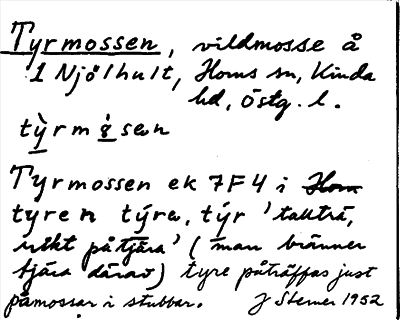 Tyrmossen, vildmosse å
1 Njölhult, Horns sn, Kinda
hd, Östg. l.
tỳrmósen
Tyrmossen ek 7F4 i Horn
tyren týra, týr 'tallträ,
rikt på tjära' (man bränner
tjära därav) tyre påträffas just
på mossar i stubbar. J Sterner 1952